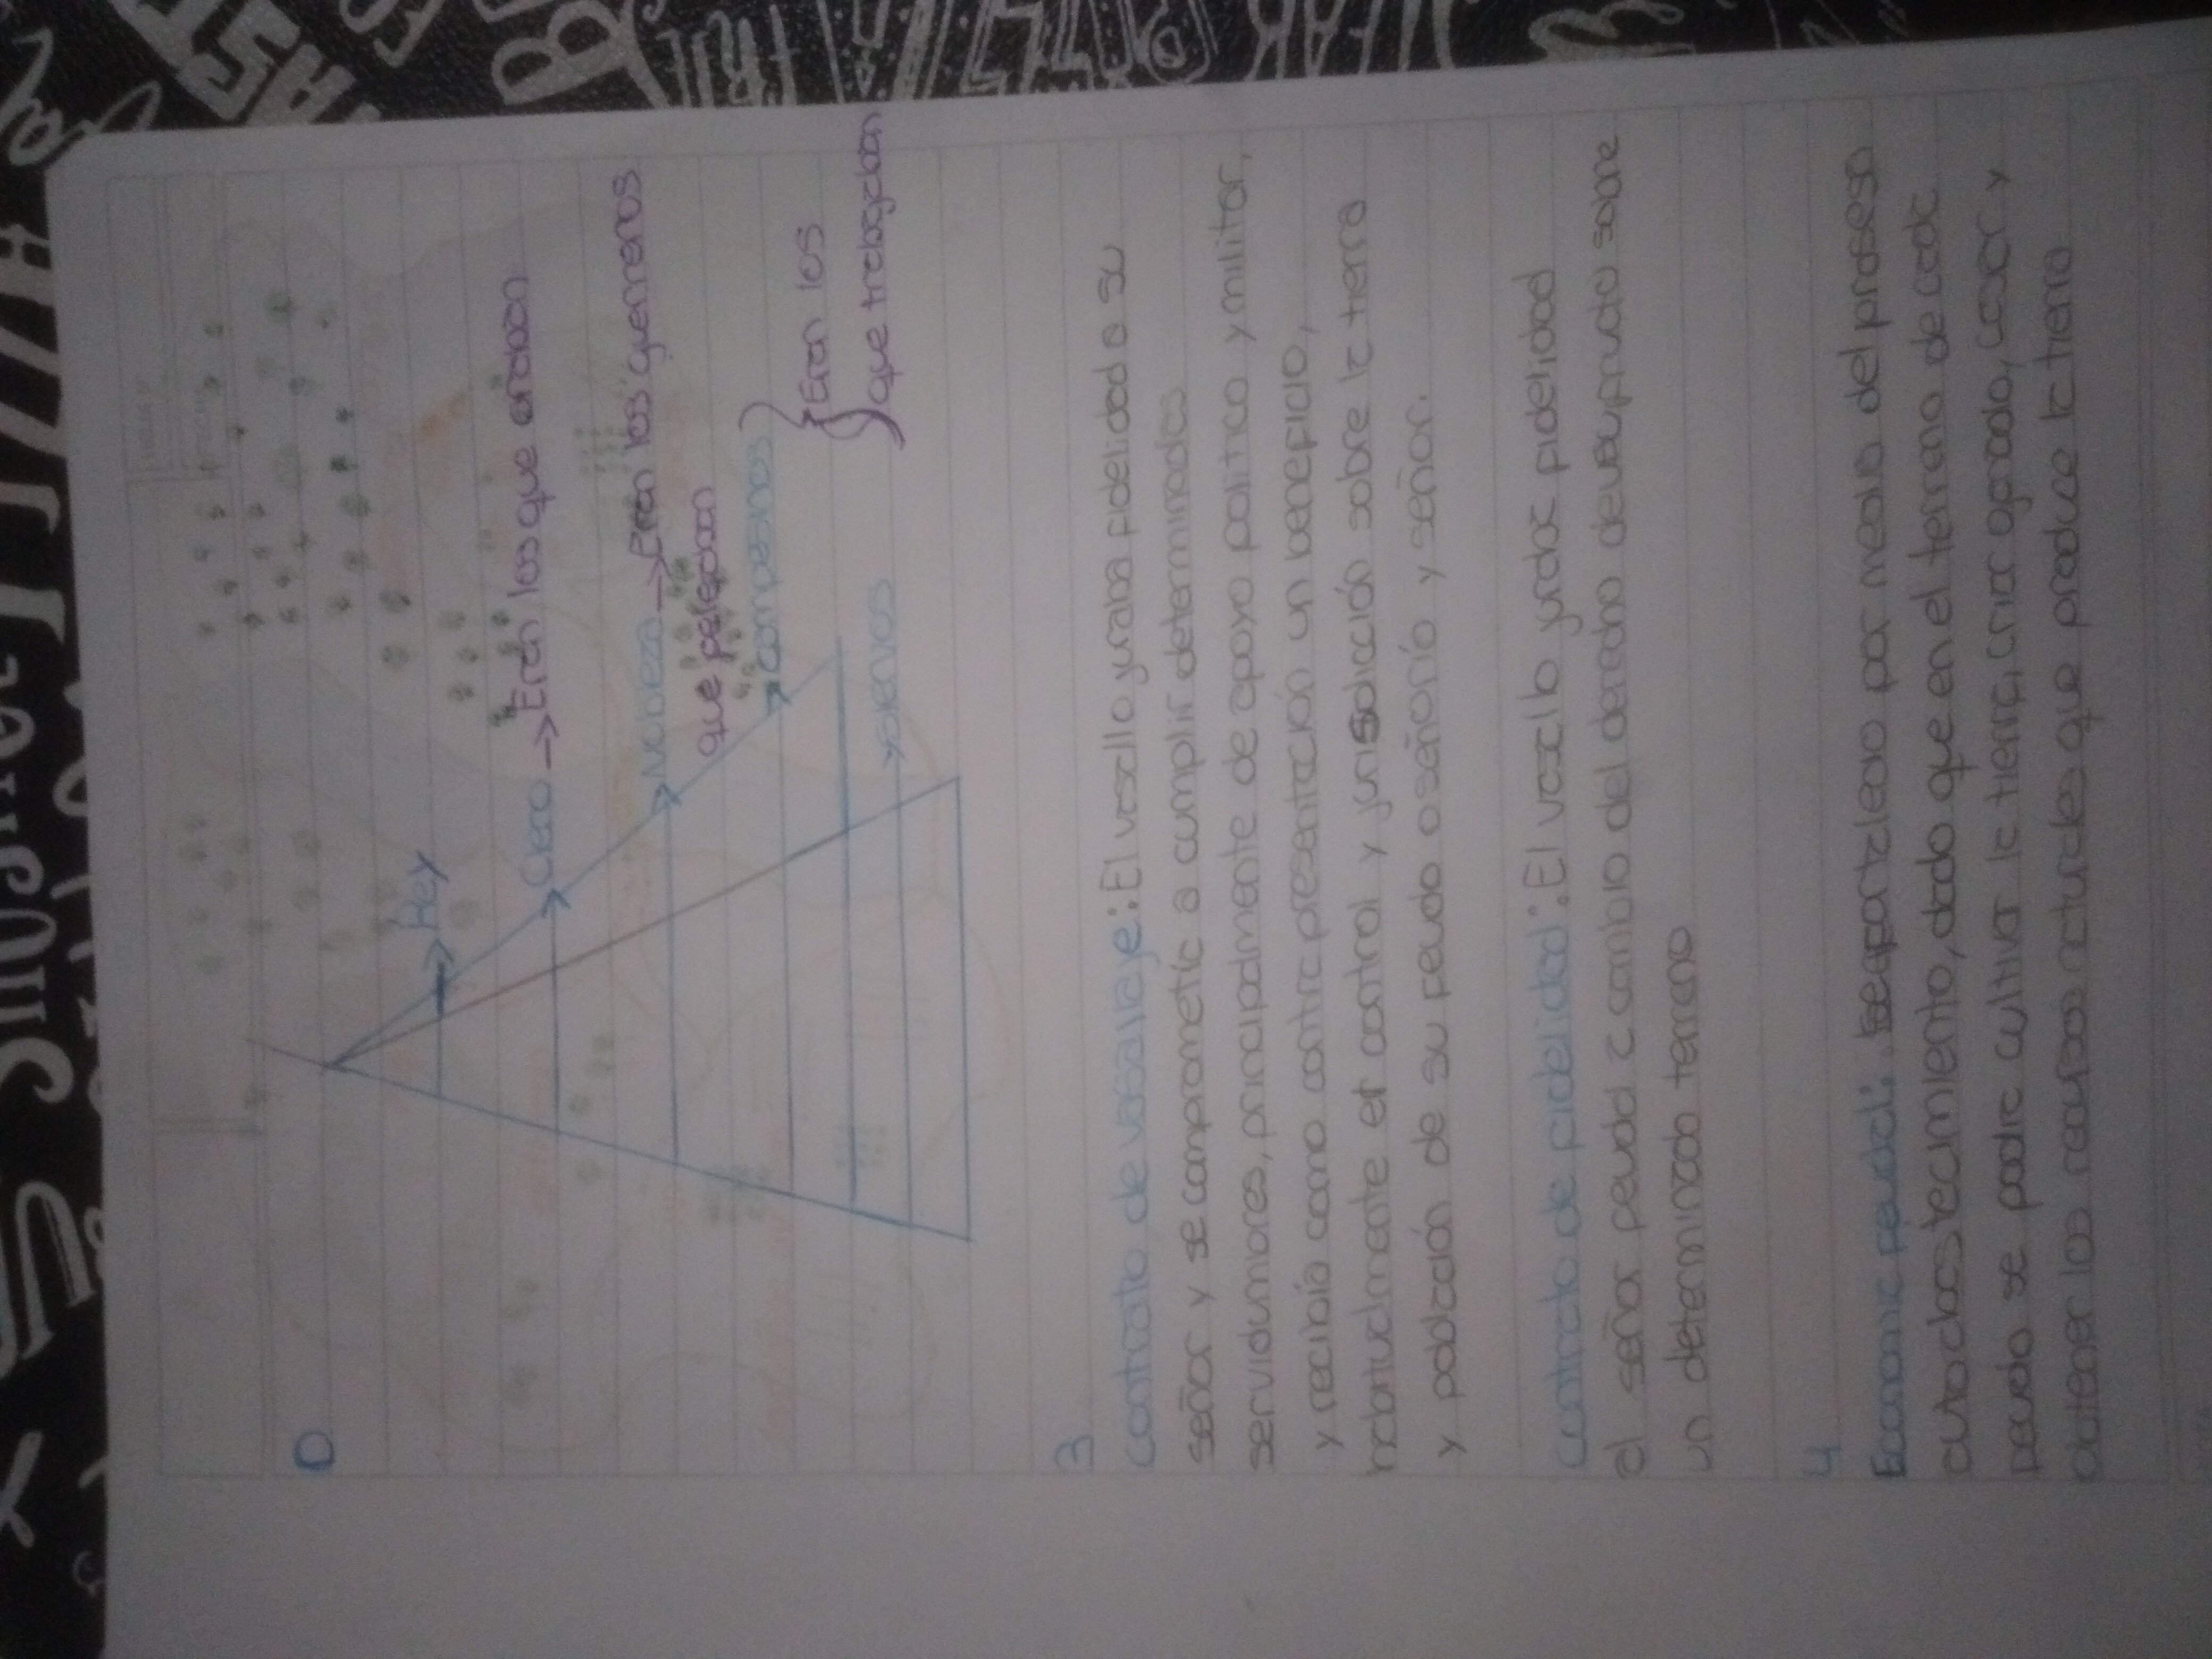 D
Rey
Clero → Eran los que oraban
Nobleza → Eran los guerreros
que peleaban
campesinos
Eran los
que trabajaban
siervos
3
contrato de vasallaje: El vasallo juraba fidelidad a su
señor y se comprometía a cumplir determinados
servidumbres, principalmente de apoyo político y militar,
y recibía como contrapresentación un beneficio,
habitualmente el control y jurisdicción sobre la tierra
y población de su feudo o señorío y señor.
contracto de fidelidad: El vasallo juraba fidelidad
al señor feudal a cambio del derecho de usufructo sobre
un determinado terreno
4
Economía feudal: Se aportaleaio por medio del proseso
autoabastecimiento, dado que en el terreno de cada
feudo se podía cultivar la tierra, criar ganado, casar y
obtener los recursos naturales que produce la tierra